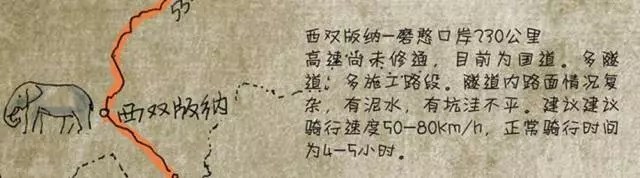 西双版纳—磨憨口岸230公里
高速尚未修通，目前为国道。多隧
道，多施工路段。隧道内路面情况复
杂，有泥水，有坑洼不平。建议建议
骑行速度50—80km/h，正常骑行时间
为4—5小时。
西双版纳